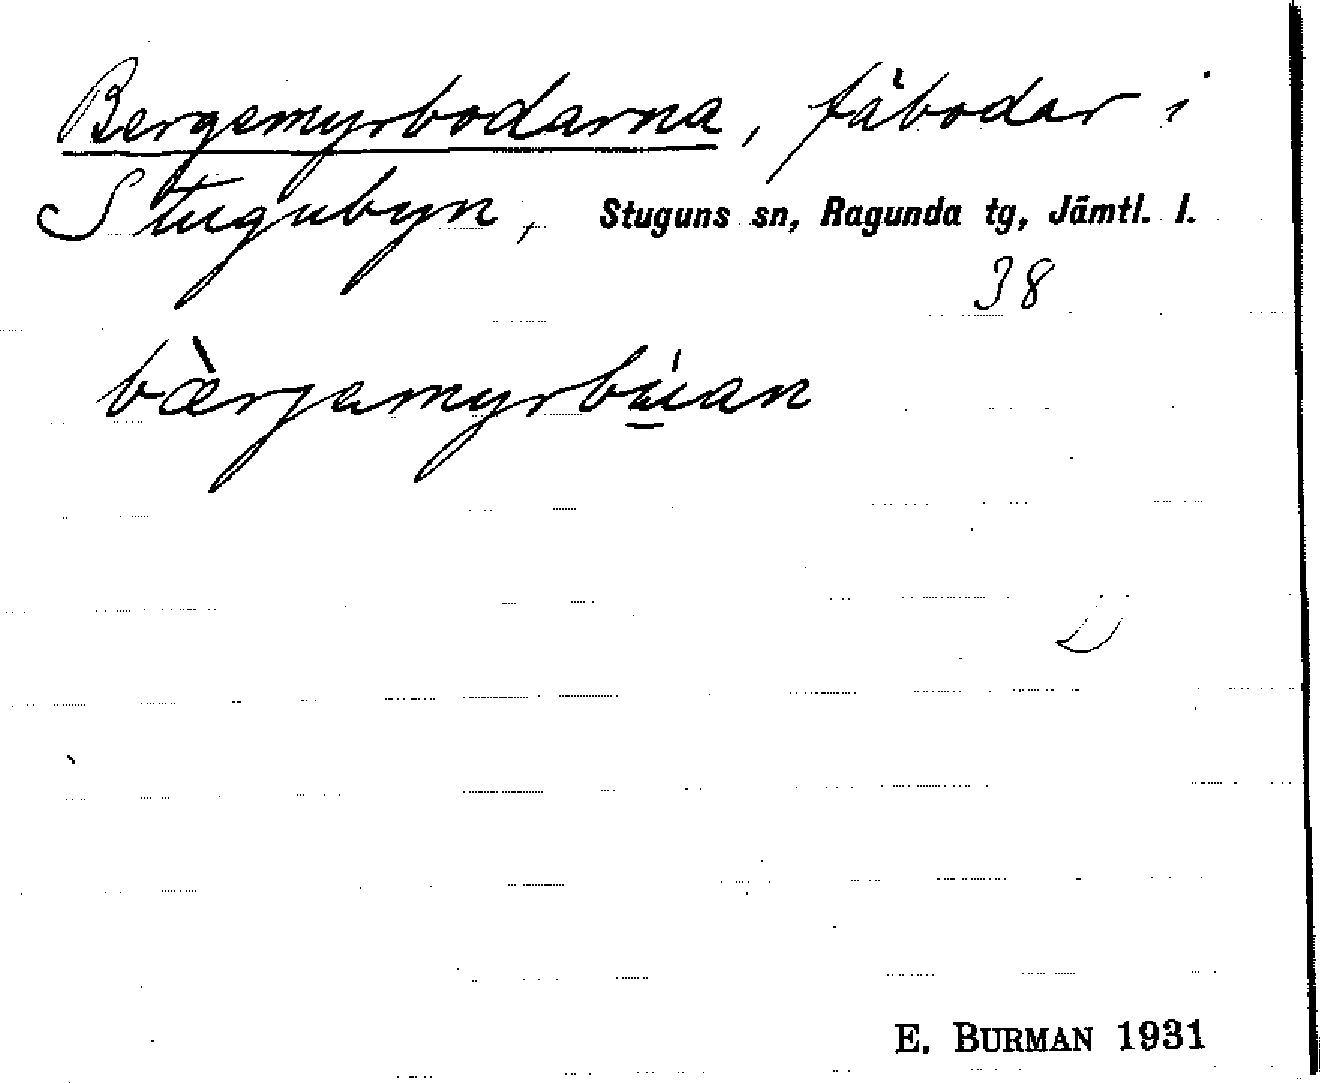 Bergemyrbodarna, fäbodar i
Stugubyn, Stuguns sn, Ragunda tg, Jämtl. l.
38
bæ̀rjamyrbúan
E. BURMAN 1931